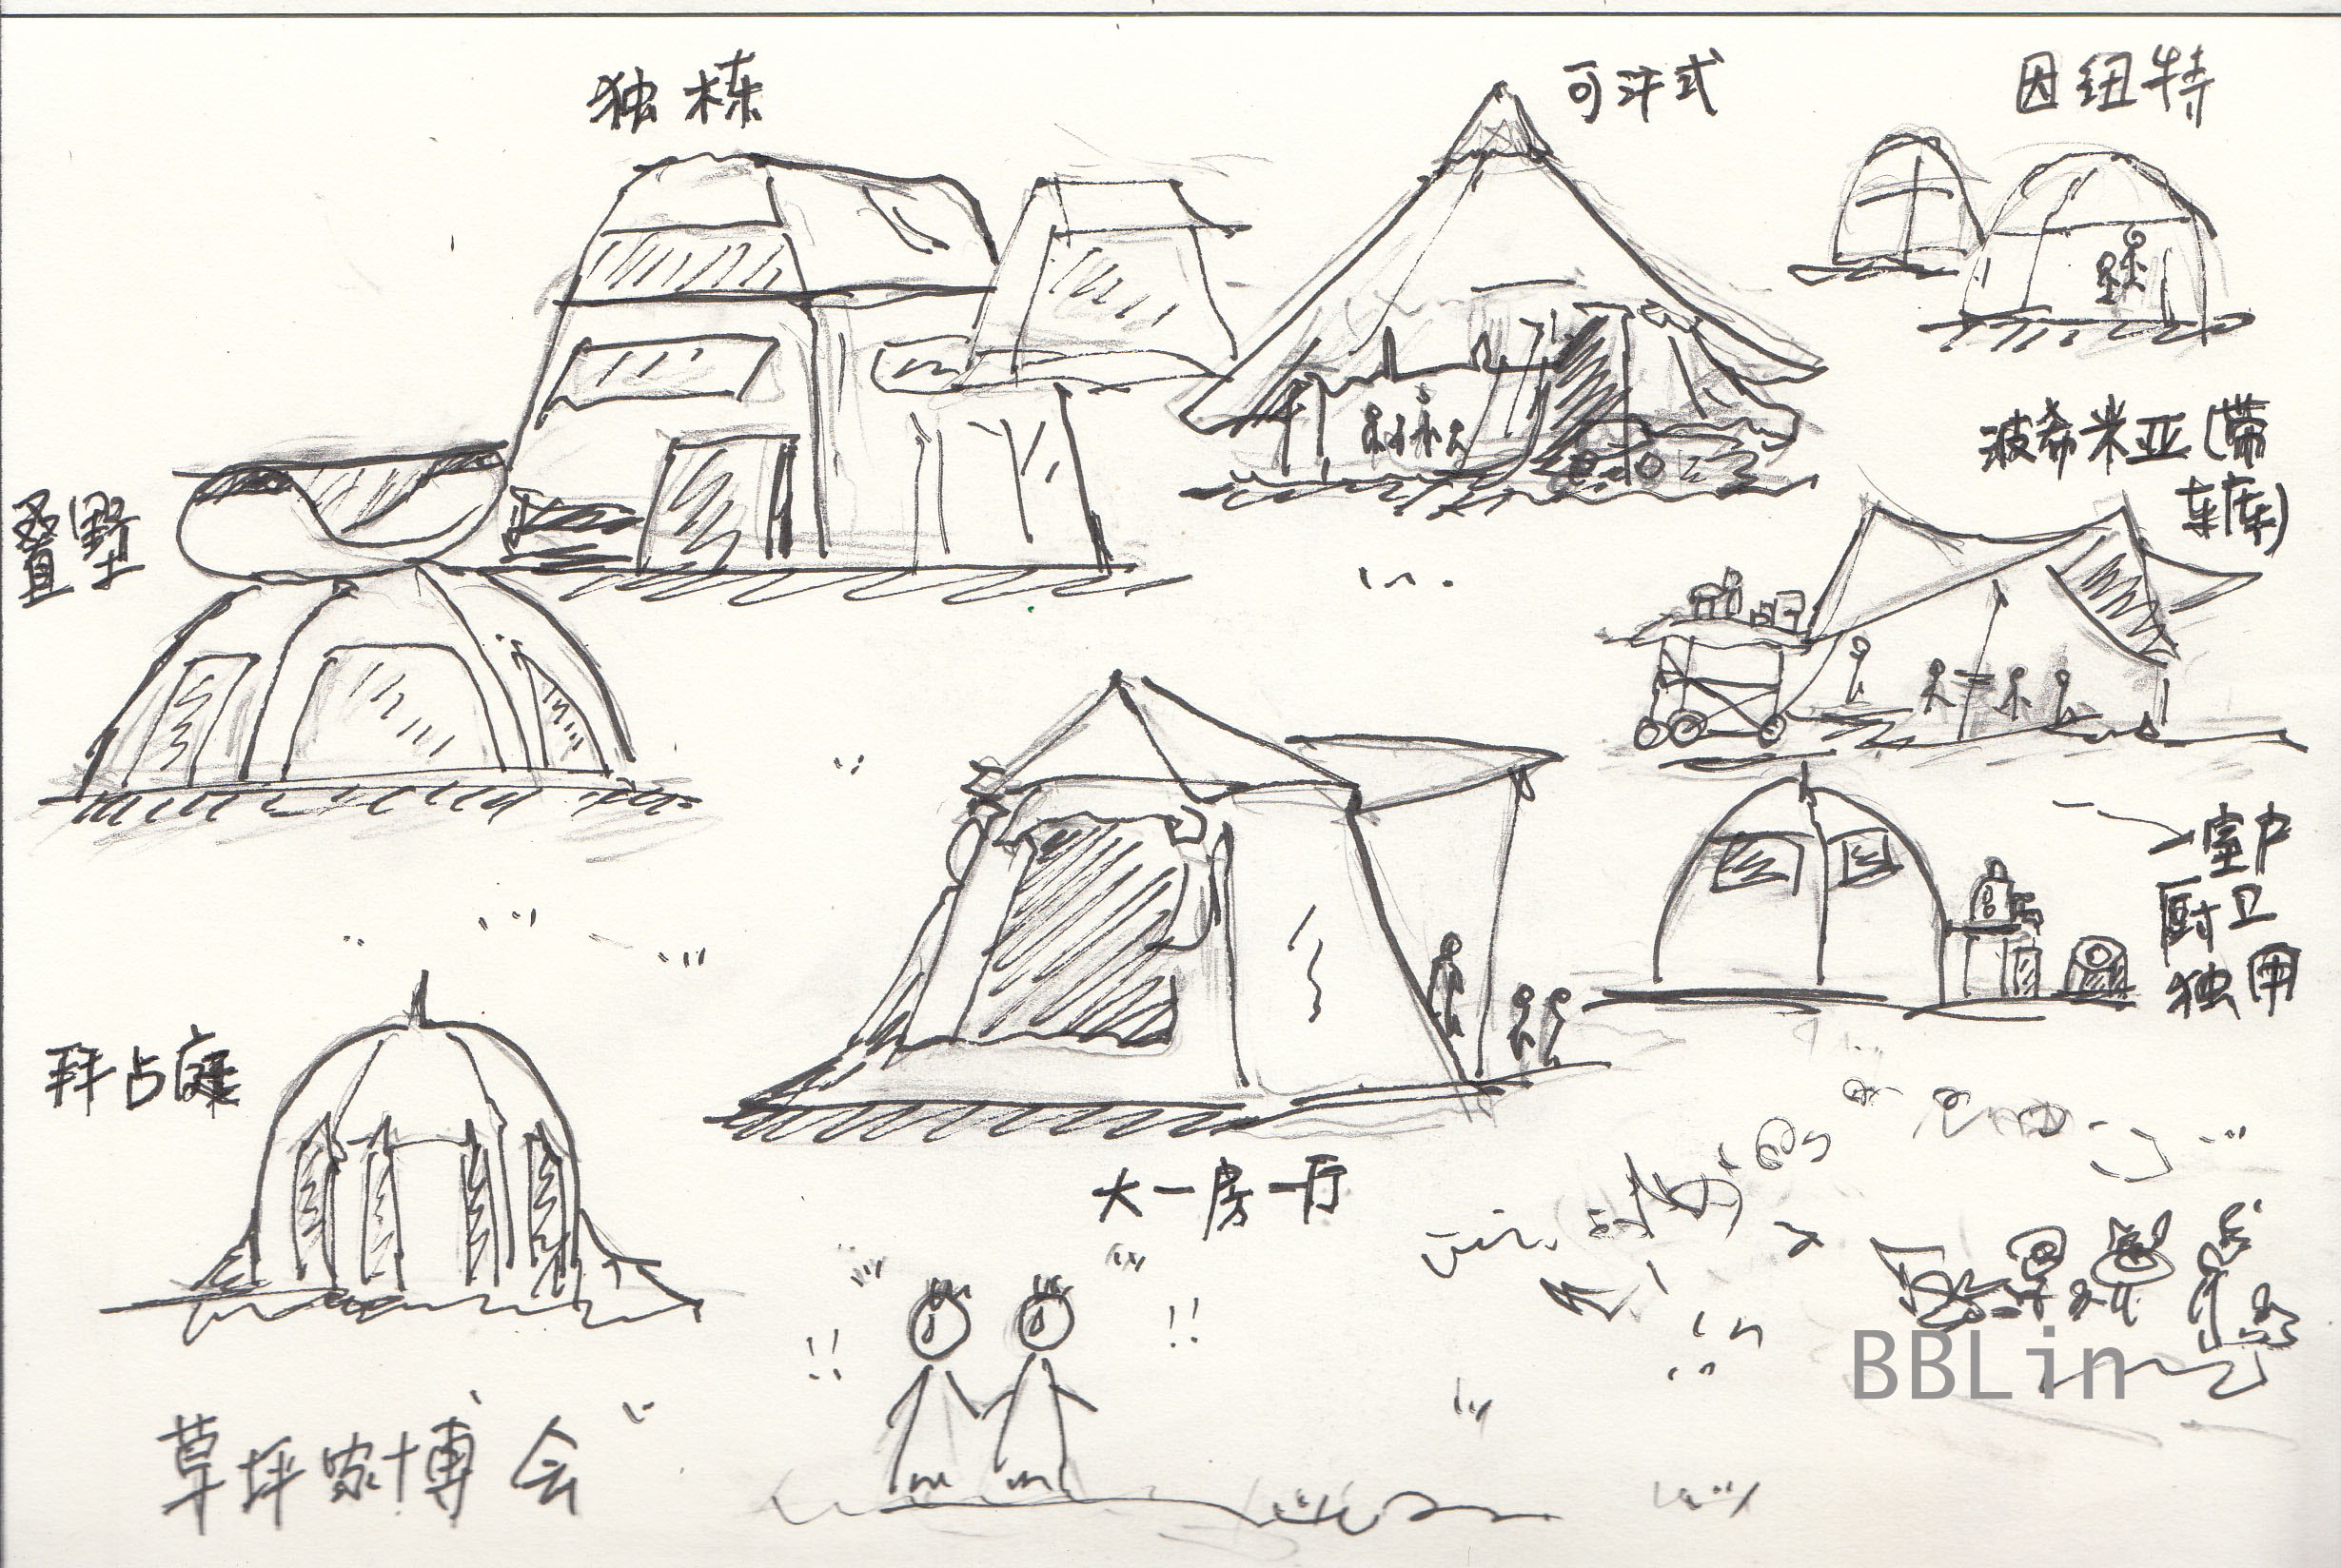 独栋
可汗式
因纽特
波希米亚(带
车库)
叠墅
一室户
厨卫
独用
拜占庭
大一房一厅
草坪家博会
BBLin